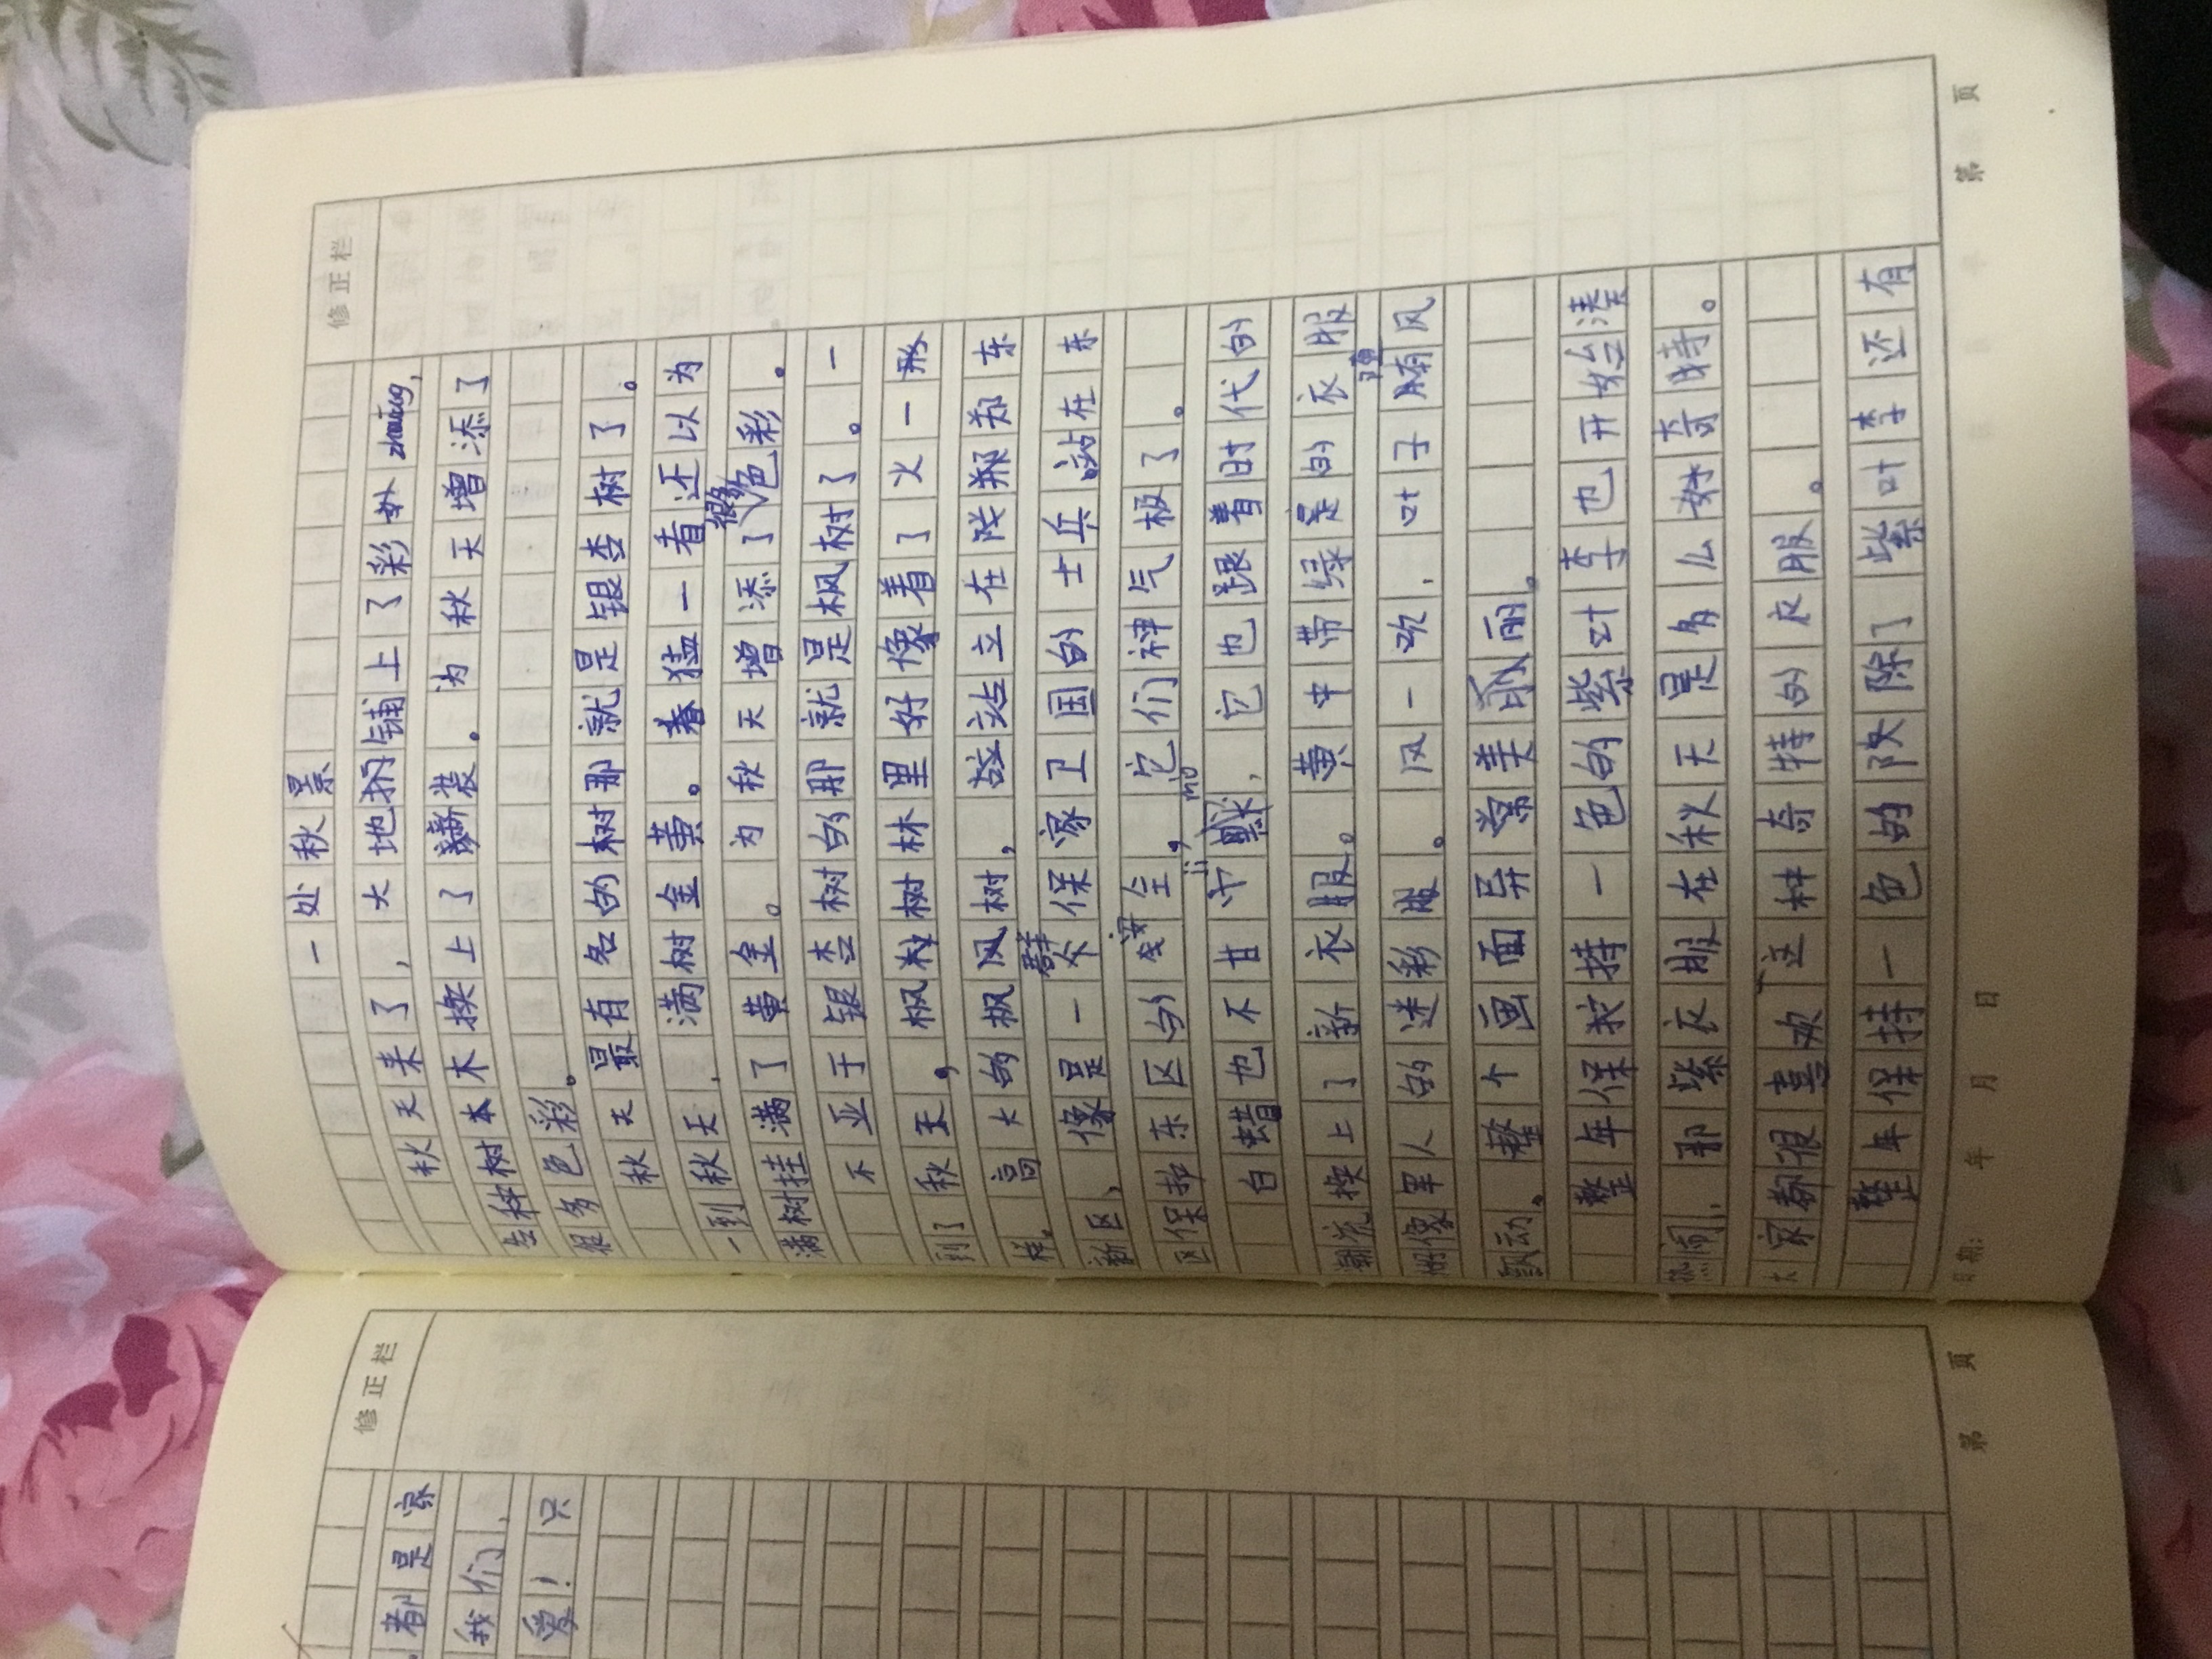 修正栏
一处秋景
秋天来了，大地扔铺上了彩妆zhuāng，
各种树木换上了新装。为秋天增添了
很多色彩。
秋天最有名的树那就是银杏树了。
一到秋天，满树金黄。春猛一看还以为
满树挂满了黄金。为秋天增添了很多色彩。
不亚于银杏树的那就是枫树了。一
到了秋天，枫树林里好像着了火一
样。高大的枫树，站立在陕郑郑东
新区，像是一群保家卫国的士兵站在东
区保护东区的安全，它们神气极了。
白蜡也不甘寂默jì mò，它也跟着时代的
潮流换上了新衣服。黄中带绿是的衣服
像军人的迷彩服。风一吹，叶子随风
飘动。整个画面异常美丽。
整年保持一色的紫叶李也开始凑
热闹，那紫衣服在秋天是多么好奇特。
大家都很喜欢这种奇特的衣服。
整年保持一色的除了紫叶李还有
日期： 年 月 日
第 页
修正栏
都是家
我们，
爱！只
第 页